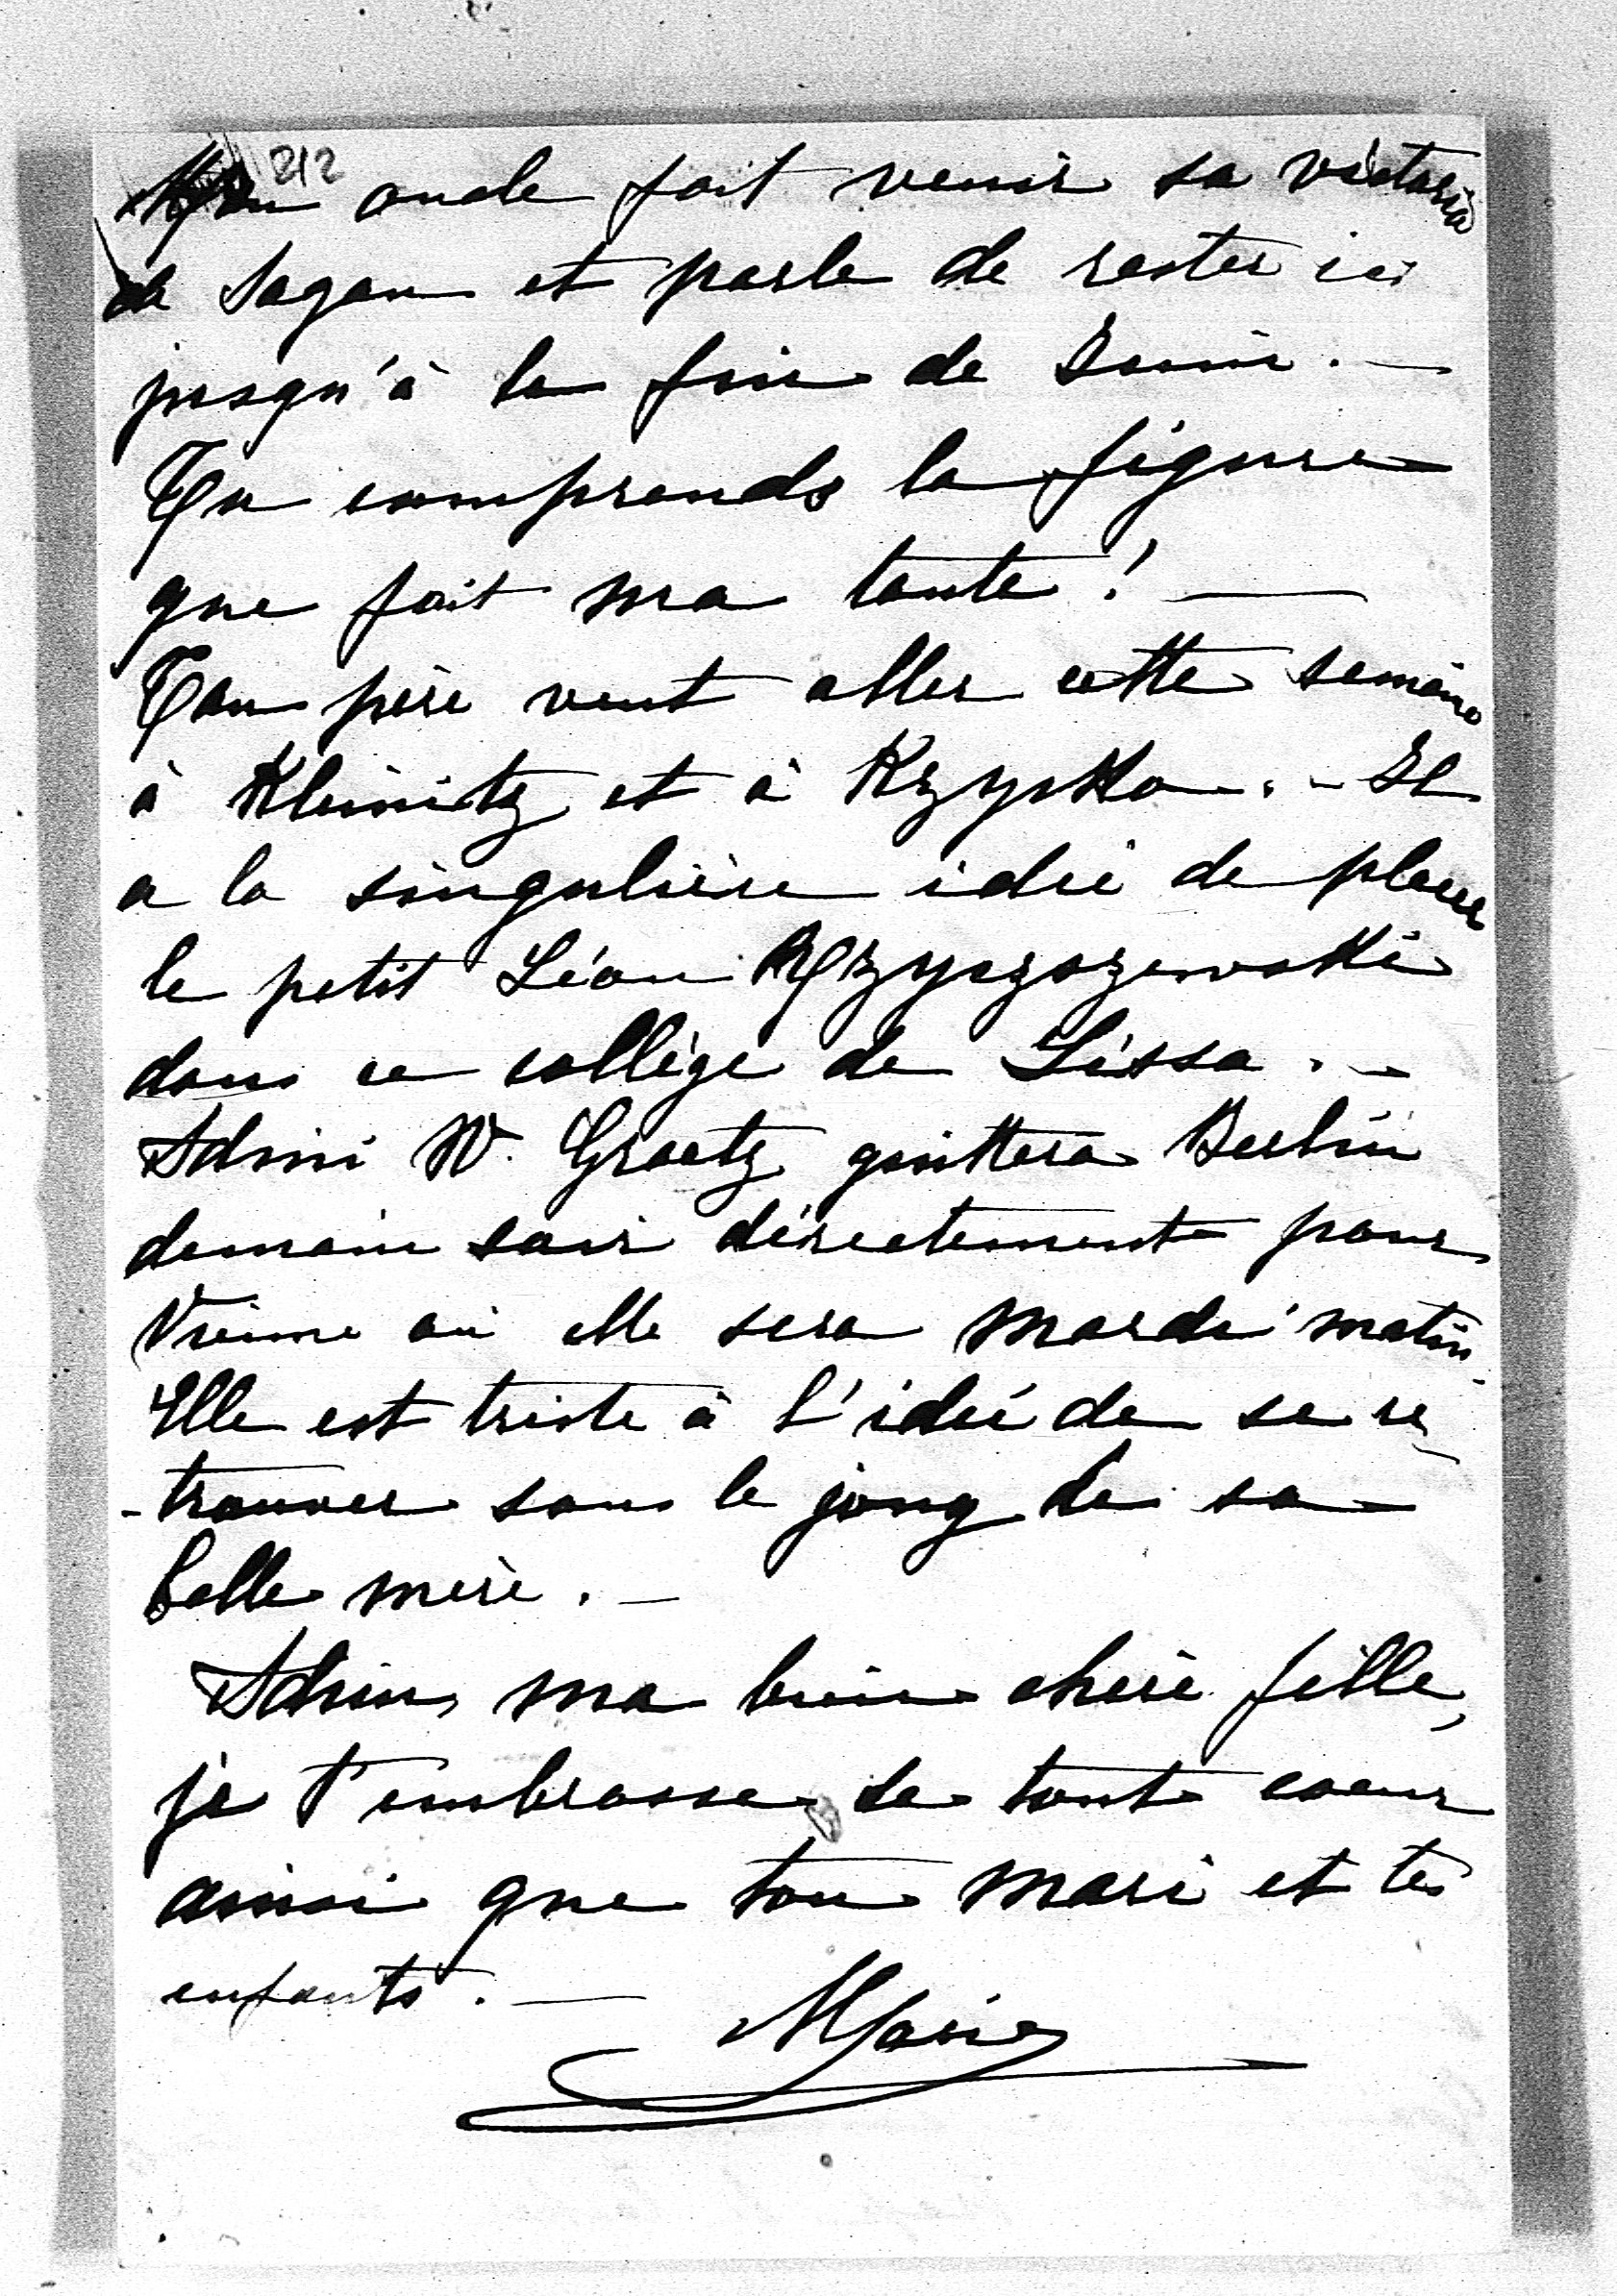 212
Mon oncle fait venir sa victoria
de Sagan et parle de rester ici
jusqu'à la fin de Juin. —
Tu comprends la figure
que fait ma tante ! —
Ton père veut aller cette semaine
à Kleinitz et à Krzyski. - Il
a la singulière idée de placer
le petit Léon Rzyszczewski
dans ce collège de Lissa. -
Admi W. Graetz quittera Berlin
demain soir directement pour
Vienne où elle sera Mardi matin.
Elle est triste à l'idée de se re
-trouver sous le joug de sa
belle mère. —
Adieu, ma bien chère fille,
je t'embrasse de tout coeur
ainsi que ton mari et tes
enfants. —
Marie